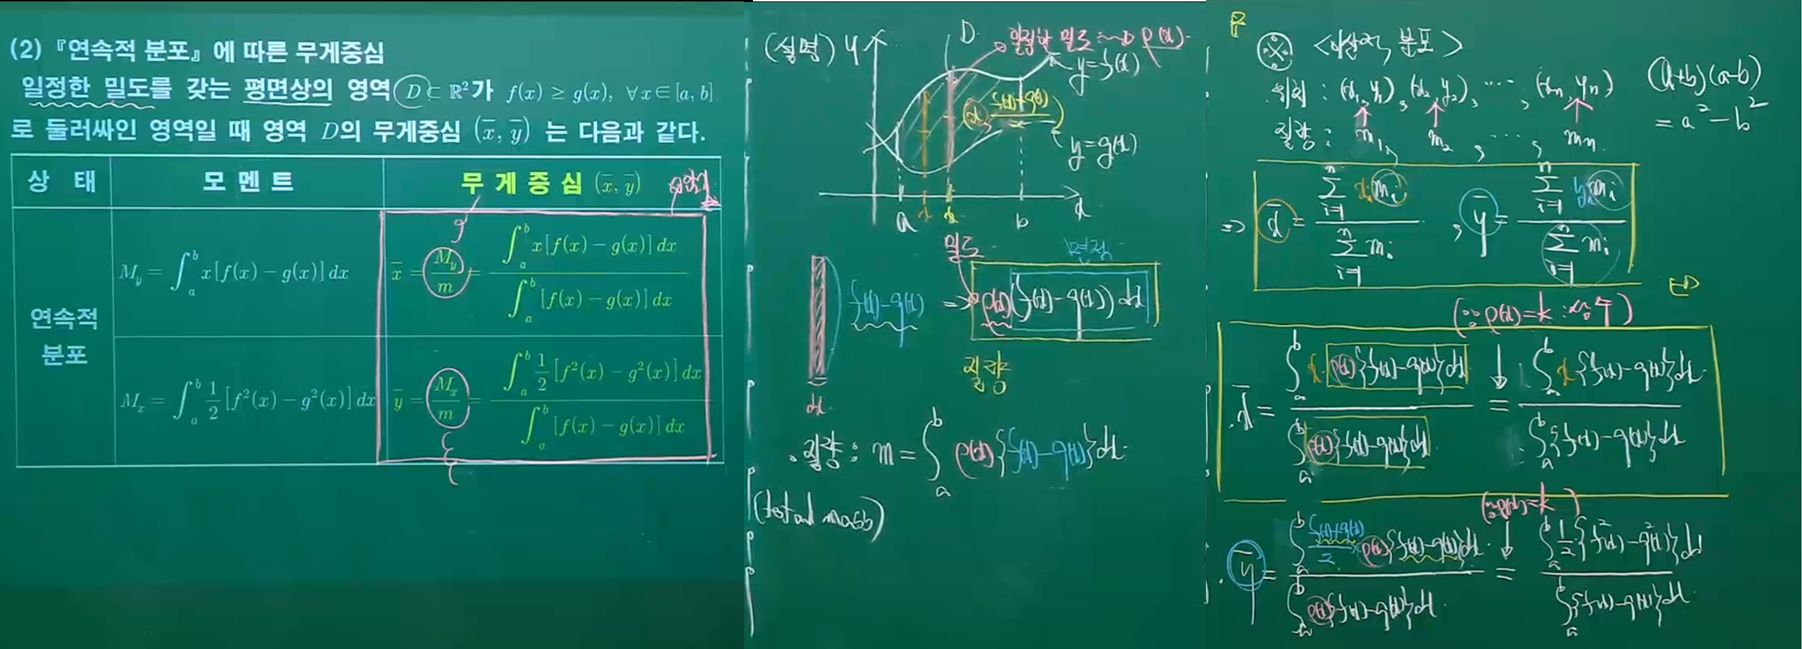 (2) 『연속적 분포』에 따른 무게중심
일정한 밀도를 갖는 평면상의 영역 D ⊂ ℝ²가 f(x) ≥ g(x), ∀x∈[a, b]
로 둘러싸인 영역일 때 영역 D의 무게중심 (x̄, ȳ) 는 다음과 같다.
상 태 모 멘 트 무 게 중 심 (x̄, ȳ) 암기
연속적 분포
M_y = ∫_a^b x[f(x) − g(x)] dx
x̄ = M_y/m = ∫_a^b x[f(x) − g(x)] dx / ∫_a^b [f(x) − g(x)] dx
M_x = ∫_a^b 1/2 [f²(x) − g²(x)] dx
ȳ = M_x/m = ∫_a^b 1/2 [f²(x) − g²(x)] dx / ∫_a^b [f(x) − g(x)] dx
(설명) y D 일정한 밀도 : ρ(x).
y = f(x)
(x, f(x)+g(x)/2)
y = g(x)
a x x b x
밀도 면적
f(x)−g(x) ⇒ ρ(x)(f(x)−g(x))dx
질량
dx
질량 : m = ∫_a^b ρ(x){f(x)−g(x)}dx.
(total mass)
※ <이산적 분포>
위치 : (x₁, y₁), (x₂, y₂), ⋯, (xₙ, yₙ)
질량 : m₁, m₂, ⋯, mₙ
(a+b)(a−b)
= a² − b²
⇒ x̄ = Σ_{i=1}^n xᵢmᵢ / Σ_{i=1}^n mᵢ , ȳ = Σ_{i=1}^n yᵢmᵢ / Σ_{i=1}^n mᵢ
(∵ ρ(x)=k : 상수)
x̄ = ∫_a^b x·ρ(x){f(x)−g(x)}dx / ∫_a^b ρ(x){f(x)−g(x)}dx = ∫_a^b x{f(x)−g(x)}dx / ∫_a^b {f(x)−g(x)}dx
(∵ρ(x)=k)
ȳ = ∫_a^b f(x)+g(x)/2 ρ(x){f(x)−g(x)}dx / ∫_a^b ρ(x){f(x)−g(x)}dx = ∫_a^b 1/2{f²(x)−g²(x)}dx / ∫_a^b {f(x)−g(x)}dx